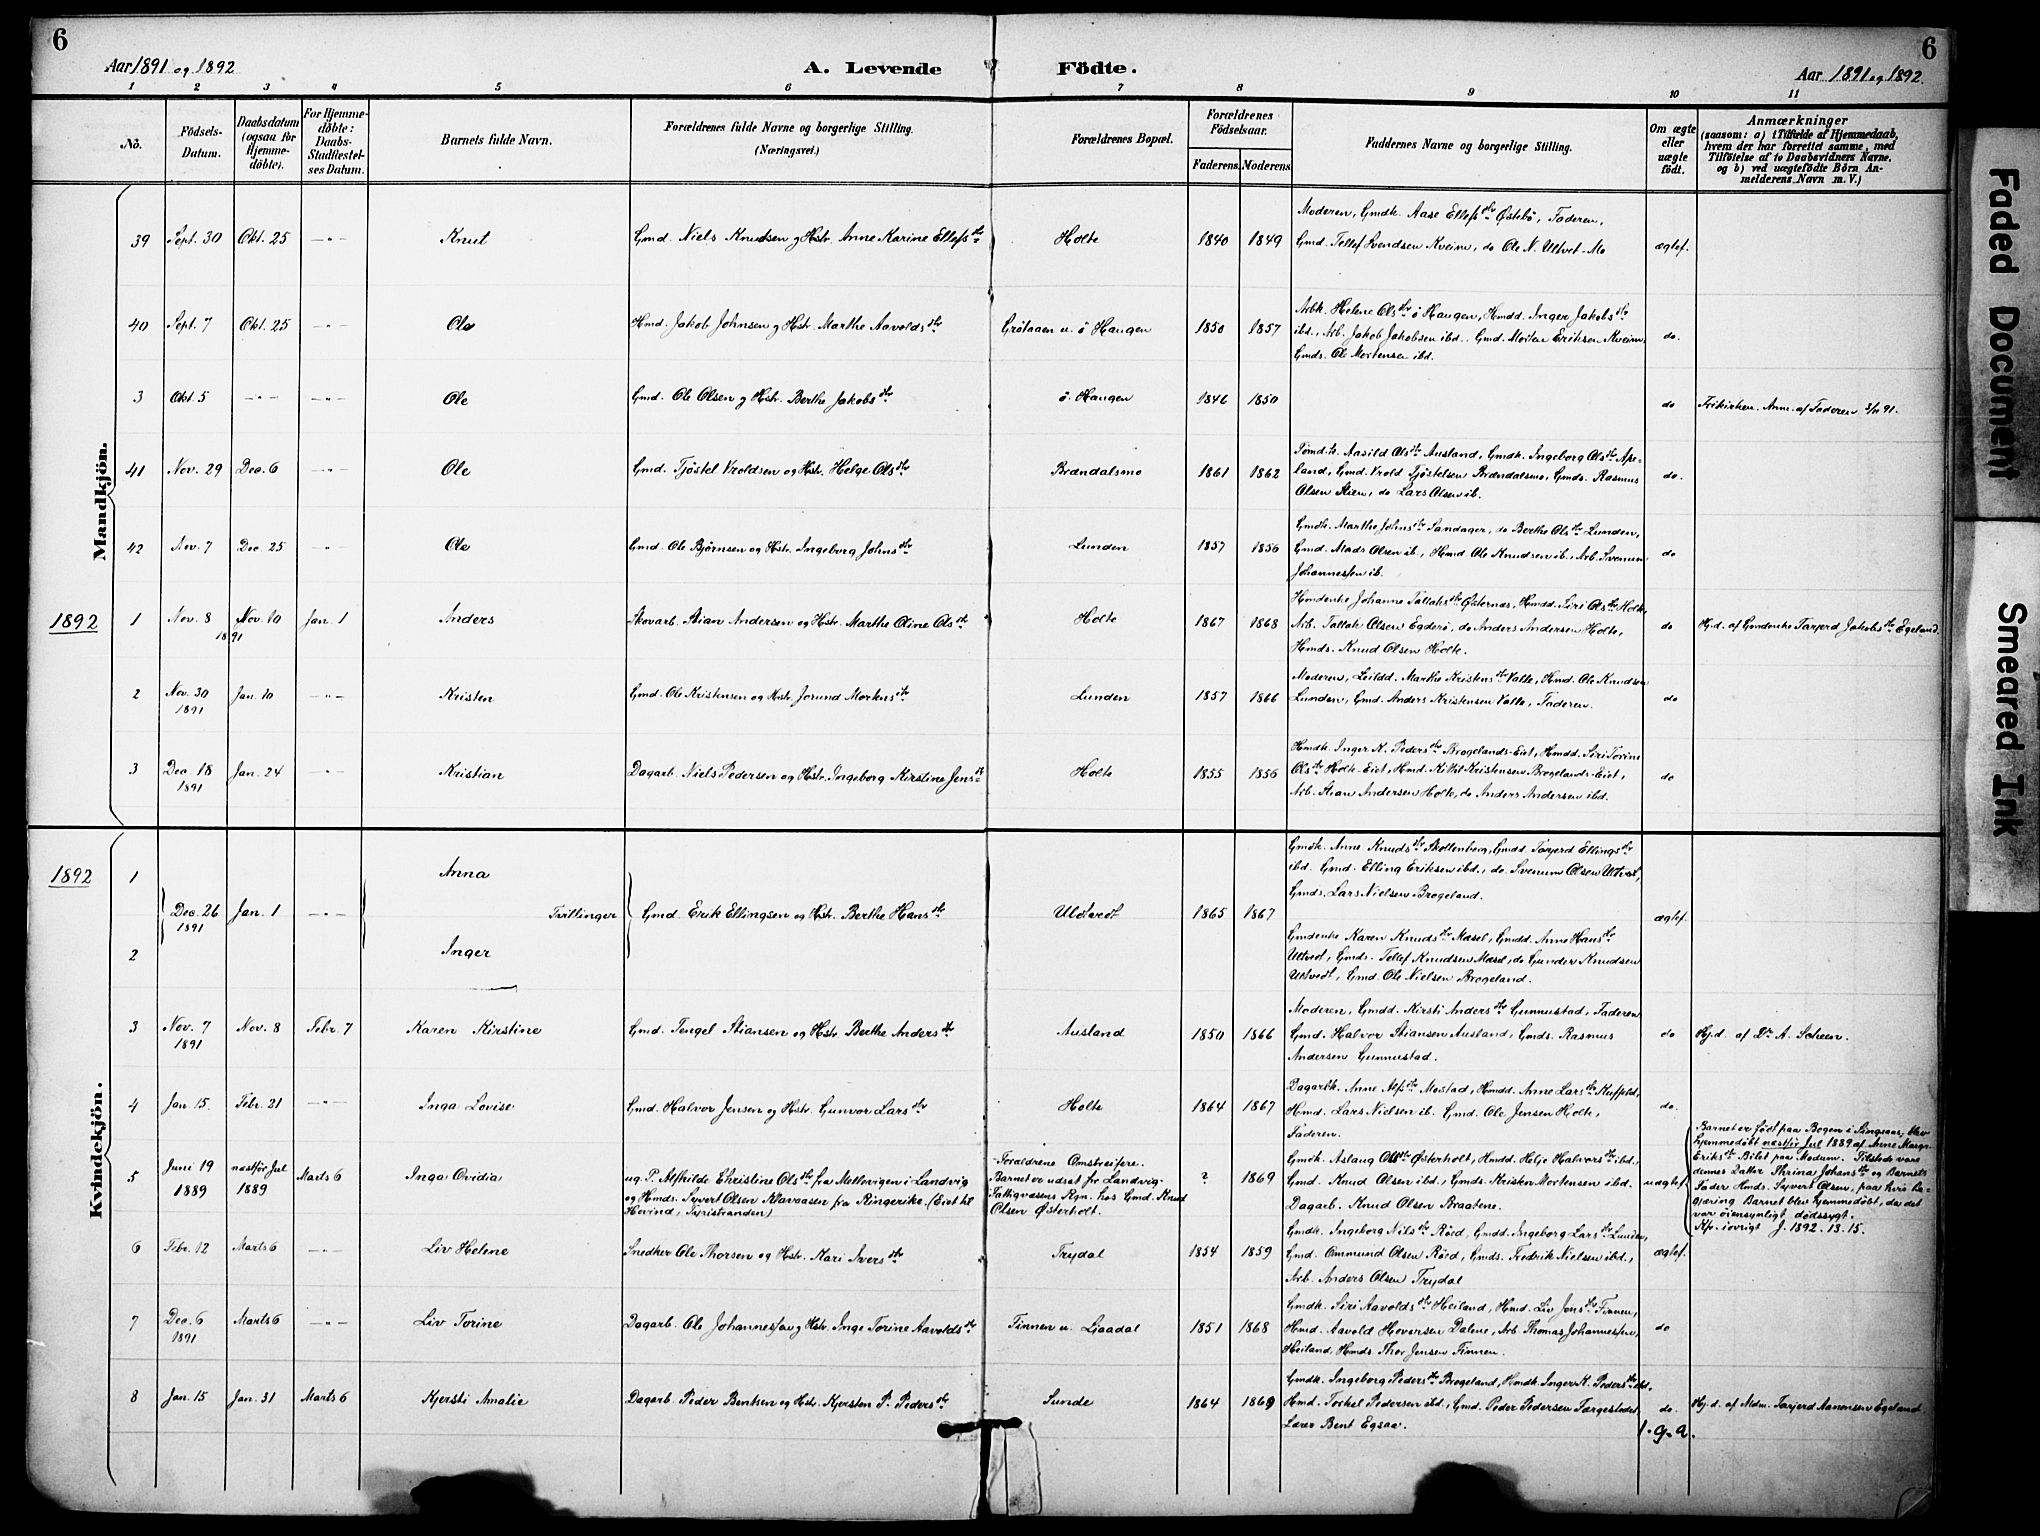 6
6
Aar 1891 og 1892
A. Levende
Födte.
Aar 1891 og 1892.
1 2 3 4 5 6 7 8 9 10 11
No.
Födsels-
Datum.
Daabsdatum
(ogsaa for
Hjemme-
döbte).
For Hjemme-
döbte:
Daabs-
Stadfæstel-
ses Datum.
Barnets fulde Navn.
Forældrenes fulde Navne og borgerlige Stilling.
(Næringsvei.)
Forældrenes Bopæl.
Forældrenes
Födselsaar.
Faderens. Moderens.
Faddernes Navne og borgerlige Stilling.
Om ægte
eller
uægte
födt.
Anmærkninger
(saasom: a) i Tilfælde af Hjemmedaab,
hvem der har forrettet samme, med
Tilföielse af to Daabsvidners Navne.
og b) ved uægtefödte Börn An-
melderens Navn m. V.)
Mandkjön.
39 Sept. 30 Okt. 25 —"— Knut Gmd. Niels Knudsen og Hstr. Anne Karine Ellefsdtr Holte 1840 1849
Moderen, Gmdk. Aase Ellefsdtr Østebö, Faderen,
Gmd. Tellef Svendsen Kveim, do Ole N. Ultvet-Mo
ægtef.
40 Sept. 7 Okt. 25 —"— Ole Hmd. Jakob Johnsen og Hstr. Marthe Aavoldsdtr Grötaaen u. ö Haugen 1850 1857
Arbk. Helene Olsdtr ö Haugen, Hmdd. Inger Jakobsdtr
ibd., Arb. Jakob Jakobsen ibd., Gmd. Morten Eriksen Kveim,
Gmds. Ole Mortensen ibd.
do.
3 Okt. 5 —"— —"— Ole Gmd. Ole Olsen og Hstr. Berthe Jakobsdtr ö. Haugen 1846 1850 do Frikirken. Anm. af Faderen 3/11 91.
41 Nov. 29 Dec. 6 —"— Ole Gmd. Tjöstel Vroldsen og Hstr. Helge Olsdtr Brændalsmo 1861 1862
Tømd.k. Aasild Olsdtr Ausland, Gmdk. Ingeborg Olsdtr Ape-
land, Gmd. Vrold Tjöstelsen Brændalsmo, Gmds. Rasmus
Olsen Stien, do Lars Olsen ib.
do.
42 Nov. 7 Dec. 25 —"— Ole Gmd. Ole Bjørnsen og Hstr. Ingeborg Johnsdtr Lunden 1857 1856
Gmdk. Marthe Johnsdtr Sandager, do Berthe Olsdtr Lunden,
Gmd. Mads Olsen ib., Hmd. Ole Knudsen ib., Arb. Svenum
Johannessen ib.
do
1892
1 Nov. 8 Nov. 10 Jan. 1 Anders Skovarb. Stian Andersen og Hstr. Marthe Oline Olsdtr Holte 1867 1868
1891
Hmdenke Johanne Tallaksdtr Østernes, Hmdd. Siri Olsdtr Holte,
Arb. Tallak Olsen Egderö, do Anders Andersen Holte,
Hmds. Knud Olsen Holte.
do Hj.d. af Gmdenke Tarjerd Jakobsdtr Egeland.
2 Nov. 30 Jan. 10 —"— Kristen Gmd. Ole Kristensen og Hstr. Jorund Mortensdtr Lunden 1857 1866
1891
Moderen, Leildd. Marthe Kristensdtr Valle, Hmd. Ole Knudsen
Lunden, Gmd. Anders Kristensen Valle, Faderen.
do
3 Dec. 18 Jan. 24 —"— Kristian Dagarb. Niels Pedersen og Hstr. Ingeborg Kirstine Jensdtr Holte 1855 1856
1891
Hmdk. Inger K. Pedersdtr Brogelands-Eiet, Hmdd. Siri Torine
Olsdtr Holte-Eiet, Hmd. Kittil Kristensen Brogelands-Eiet,
Arb. Stian Andersen Holte, do Anders Andersen ibd.
do
1892
Kvindekjön.
1 Anna
Dec. 26 Jan. 1 —"— Tvillinger Gmd. Erik Ellingsen og Hstr. Berthe Hansdtr Uldtvedt 1865 1867
1891
2 Inger
Gmdk. Anne Knudsdtr Skollenborg, Gmdd. Tarjerd Ellingsdtr
ibd. Gmd. Elling Eriksen ibd., do. Svenum Olsen Ultvet,
Gmds. Lars Nielsen Brogeland.
ægtef.
Gmdenke Karen Knudsdtr Mæsel, Gmdd. Anne Hansdtr
Ultvedt, Gmds. Tellef Knudsen Mæsel, do Gunder Knudsen
Ultvedt, Gmd. Ole Nielsen Brogeland.
3 Nov. 7 Nov. 8 Febr. 7 Karen Kirstine Gmd. Tengel Stiansen og Hstr. Berthe Andersdtr Ausland 1850 1866
1891
Moderen, Gmdd. Kirsti Andersdtr Gunnustad, Faderen
Gmd. Halvor Stiansen Ausland, Gmds. Rasmus
Andersen Gunnustad.
do Hj.d. af Dr A. Scheen.
4 Jan. 15. Febr. 21 —"— Inga Lovise Gmd. Halvor Jensen og Hstr. Gunvor Larsdtr Holte 1864 1867
Dagarbk. Anne Alfsdtr Mostad, Hmdd. Anne Larsdtr
Hmd. Lars Nielsen ib. Gmd. Ole Jensen Holte,
Faderen.
do.
5 Juni 19 næstför Jul Marts 6 Inga Ovidia
1889 1889
ug. P. Alfhilde Christine Olsdtr fra Mellevigen i Landvig
og Hmds. Syvert Olsen Klavaasen fra Ringerike. (Eiet til
Hovind, Tyristranden)
Forældrene Omstreifere.
Barnet er udsat for Landvig
Fattigvæsens Regn. hos Gmd. Knud
Olsen Østerholt.
? 1869
Gmdk. Aslaug Olsdtr Østerholt, Hmdd. Helje Halvorsdtr ibd.,
Gmd. Knud Olsen ibd., Gmds. Kristen Mortensen ibd.
Dagarb. Knud Olsen Braatene.
uægtef.
Barnet er født paa Bogen i Singsaas, blev
hjemmedøbt næstför Jul 1889 af Anne Margr.
Eriksdtr Bilet paa Modum. Tilstede vare
dennes Datter Thrina Johansdtr og Barnets
Fader Hmds. Syvert Olsen, paa hvis Be-
gjæring Barnet blev hjemmedøbt, da det
var øiensynligt dødssygt.
Kfr. iøvrigt J. 1892. 13. 15.
6 Febr. 12 Marts 6 —"— Liv Helene Snedker Ole Thorsen og Hstr. Kari Iversdtr Trydal 1854 1859
Gmdk. Ingeborg Nilsdtr Röed, Gmdd. Ingeborg Larsdtr Lunden,
Gmd. Ommund Olsen Röed, Gmds. Fredrik Nielsen ibd.,
Arb. Anders Olsen Trydal
ægtef.
7 Dec. 6 Marts 6 —"— Liv Torine Dagarb. Ole Johannessen og Hstr. Inge Torine Aavoldsdtr Finnen u. Ljaadal 1851 1868
1891
Gmdk. Siri Aavoldsdtr Heiland, Hmd. Liv Jensdtr Finnen,
Hmd. Aavold Hoversen Dalene, Arb. Thomas Johannessen,
Heiland, Hmds. Thor Jensen Finnen.
do
8 Jan. 15 Jan. 31 Marts 6 Kjersti Amalie Dagarb. Peder Bentsen og Hstr. Kjersten P. Pedersdtr Sunde 1864 1869
Gmdk. Ingeborg Pedersdtr Brogeland, Hmdk. Inger K. Pedersdtr ibd.
Hmd. Torkel Pedersen ibd., Gmd. Peder Pedersen Færgestedet,
Lærer Bent Egsaa.
do. Hj.d. af Mdm. Tarjerd Aanonsen Egeland.
1.g.a.
Faded Document
Smeared Ink